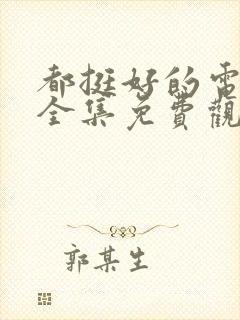 都挺好的電
全集免費觀
郭某生